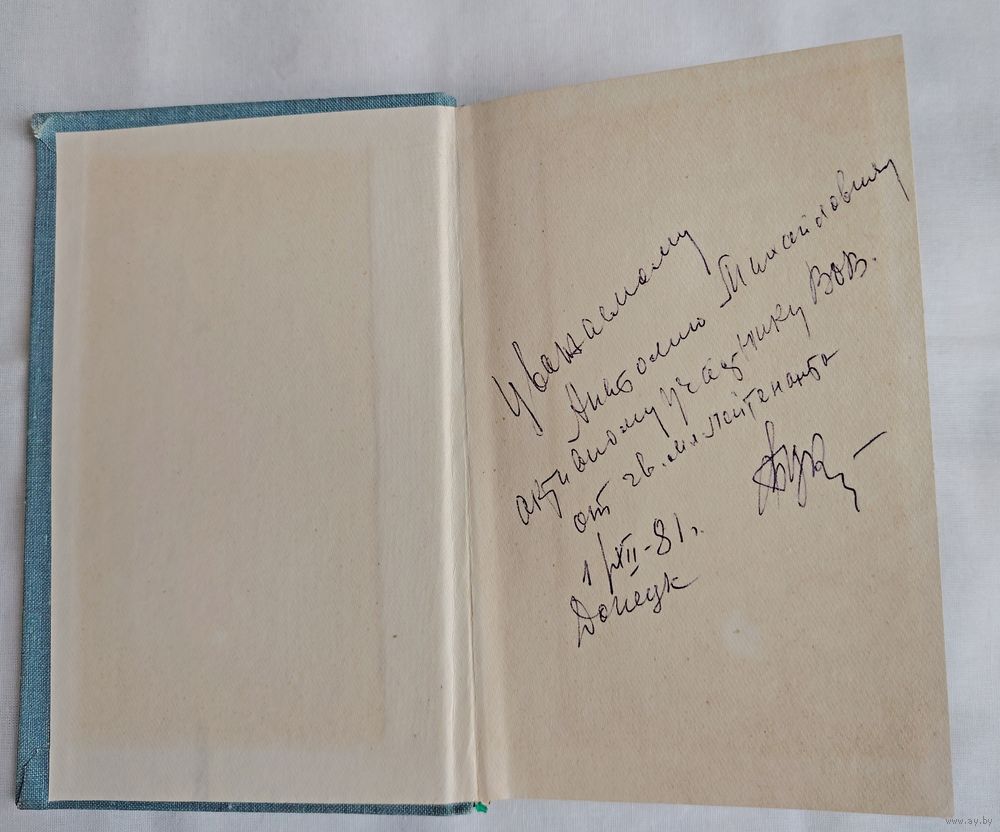 Уважаемому
Анатолию Михайловичу
активному участнику ВОВ.
от гв. мл. лейтенанта
1/XII-81г.
Донецк
www.ay.by